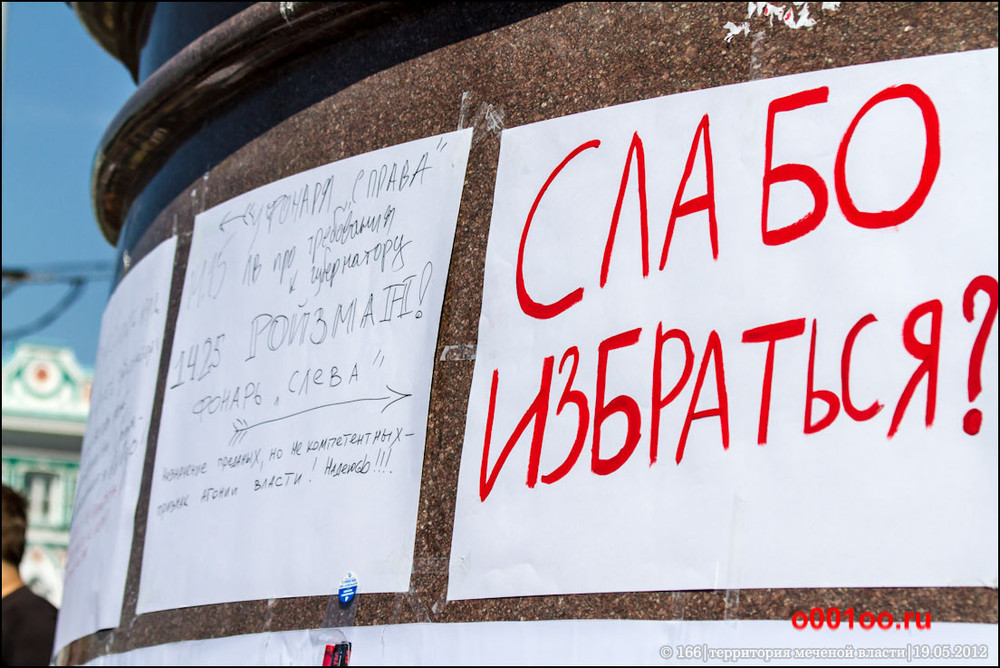 У ФОНАРЯ „СПРАВА"
ЛВ про требования
к губернатору
1425 РОЙЗМАН!
ФОНАРЬ „СЛЕВА"
НАЗНАЧЕНИЕ ПРЕДАНЫХ, НО НЕ КОМПЕТЕНТНЫХ –
ПРИЗНАК АГОНИИ ВЛАСТИ! НАДЕЮСЬ!!!
СЛАБО
ИЗБРАТЬСЯ?
o001oo.ru
© 166|территория меченой власти|19.05.2012